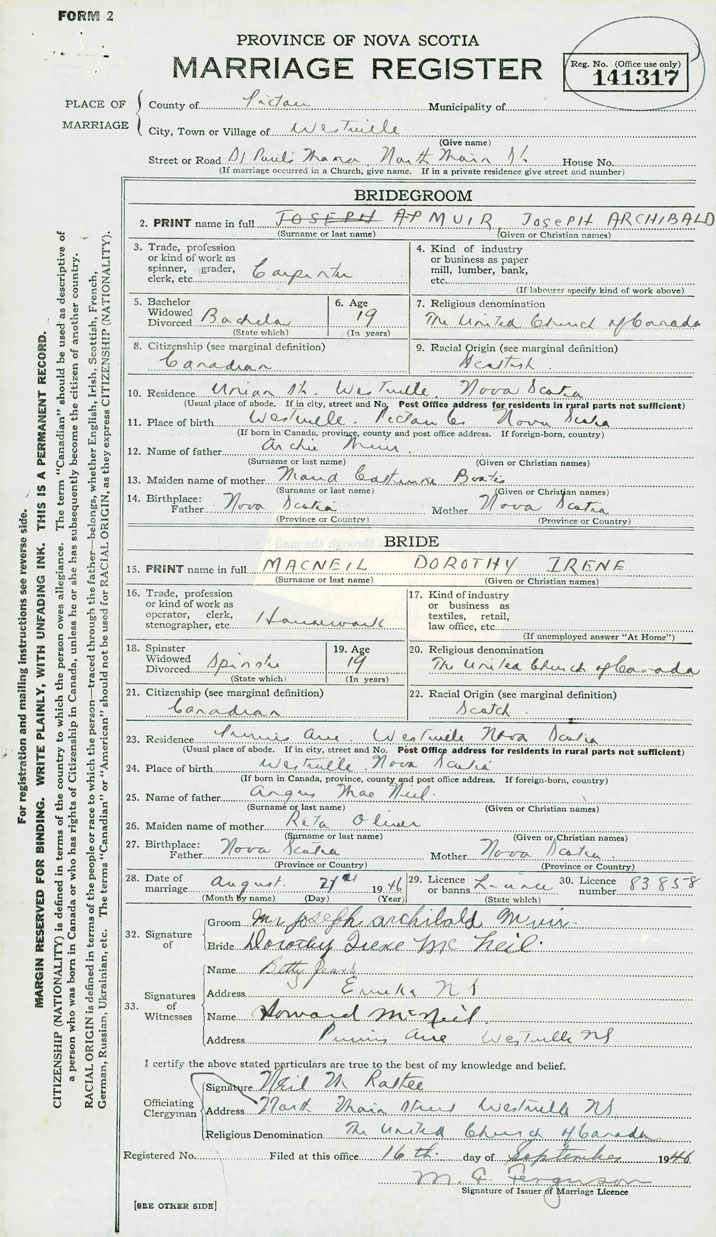 FORM 2
PROVINCE OF NOVA SCOTIA
MARRIAGE REGISTER
Reg. No. (Office use only)
141317
PLACE OF MARRIAGE
County of Pictou Municipality of
City, Town or Village of Westville
(Give name)
Street or Road St Pauls Manse, North Main St. House No.
(If marriage occurred in a Church, give name. If in a private residence give street and number)
BRIDEGROOM
2. PRINT name in full JOSEPH MUIR JOSEPH ARCHIBALD
(Surname or last name) (Given or Christian names)
3. Trade, profession or kind of work as spinner, grader, clerk, etc. Carpenter
4. Kind of industry or business as paper mill, lumber, bank, etc.
(If labourer specify kind of work above)
5. Bachelor Widowed Divorced Bachelor
(State which)
6. Age 19
(In years)
7. Religious denomination
The United Church of Canada
8. Citizenship (see marginal definition)
Canadian
9. Racial Origin (see marginal definition)
Scottish
10. Residence Union St. Westville, Nova Scotia
(Usual place of abode. If in city, street and No. Post Office address for residents in rural parts not sufficient)
11. Place of birth Westville, Pictou Co Nova Scotia
(If born in Canada, province, county and post office address. If foreign-born, country)
12. Name of father Archie Muir
(Surname or last name) (Given or Christian names)
13. Maiden name of mother Maud Catherine
(Surname or last name) (Given or Christian names)
14. Birthplace: Father Nova Scotia Mother Nova Scotia
(Province or Country) (Province or Country)
BRIDE
15. PRINT name in full MACNEIL DOROTHY IRENE
(Surname or last name) (Given or Christian names)
16. Trade, profession or kind of work as operator, clerk, stenographer, etc. Housework
17. Kind of industry or business as textiles, retail, law office, etc.
(If unemployed answer "At Home")
18. Spinster Widowed Divorced Spinster
(State which)
19. Age 19
(In years)
20. Religious denomination
The United Church of Canada
21. Citizenship (see marginal definition)
Canadian
22. Racial Origin (see marginal definition)
Scotch
23. Residence Ave. Westville Nova Scotia
(Usual place of abode. If in city, street and No. Post Office address for residents in rural parts not sufficient)
24. Place of birth Westville Nova Scotia
(If born in Canada, province, county and post office address. If foreign-born, country)
25. Name of father Angus Mac Neil
(Surname or last name) (Given or Christian names)
26. Maiden name of mother Reta Oliver
(Surname or last name) (Given or Christian names)
27. Birthplace: Father Nova Scotia Mother Nova Scotia
(Province or Country) (Province or Country)
28. Date of marriage August 21st 1946
(Month by name) (Day) (Year)
29. Licence or banns Licence
(State which)
30. Licence number 83858
32. Signature of
Groom Mr Joseph archibald Muir
Bride Dorothy Irene Mc Neil
33. Signatures of Witnesses
Name Betty
Address Eureka NS
Name Howard McNeil
Address Ave Westville NS
I certify the above stated particulars are true to the best of my knowledge and belief.
Officiating Clergyman
Signature Neil M Rattee
Address North Main Street Westville NS
Religious Denomination The United Church of Canada
Registered No. Filed at this office 16th day of September 1946
M. F. Ferguson
Signature of Issuer of Marriage Licence
[SEE OTHER SIDE]
For registration and mailing instructions see reverse side.
MARGIN RESERVED FOR BINDING. WRITE PLAINLY, WITH UNFADING INK. THIS IS A PERMANENT RECORD.
CITIZENSHIP (NATIONALITY) is defined in terms of the country to which the person owes allegiance. The term "Canadian" should be used as descriptive of
a person who was born in Canada or who has rights of Citizenship in Canada, unless he or she has subsequently become the citizen of another country.
RACIAL ORIGIN is defined in terms of the people or race to which the person—traced through the father—belongs, whether English, Irish, Scottish, French,
German, Russian, Ukrainian, etc. The terms "Canadian" or "American" should not be used for RACIAL ORIGIN, as they express CITIZENSHIP (NATIONALITY).